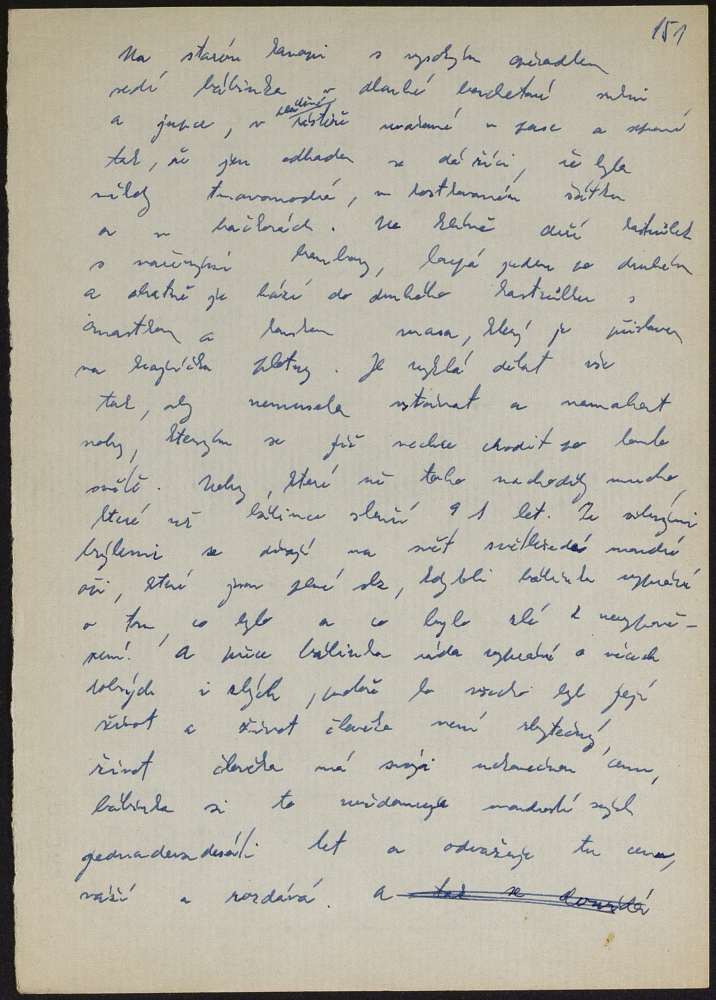 151
Na starém kanapi s vysokým opěradlem
sedí babinka v dlouhé barchetové sukni
a jupce, v zástěře uvázané v pase a seprané
tak, že jen odhadem se dá říci, že byla
někdy tmavomodrá, v kostkovaném šátku
a v bačkorách. Na klíně drží kastrůlek
s vařenými brambory, loupá jeden po druhém
a obratně je hází do druhého kastrůlku s
omastkem a kouskem masa, který je přistaven
na krajíčku plotny. Je zvyklá dělat vše
tak, aby nemusela vstávat a namáhat
nohy, kterým se již nechce chodit po tomto
světě. Nohy, které se toho nachodily mnoho,
které už babince slouží 91 let. Za silnými
brýlemi se dívají na svět světlešedé moudré
oči, které jsou plné slz, kdykoli babinka vypráví
o tom, co bylo a co bylo zlé k nevypově-
zení. A přece babinka ráda vypráví o věcech
dobrých i zlých, protože to všecko byl její
život a život člověka není zbytečný,
život člověka má svoji nekonečnou cenu,
babinka si to uvědomuje moudrostí svých
jednadevadesáti let a odvažuje tu cenu,
váží a rozdává. A tak se dovídá